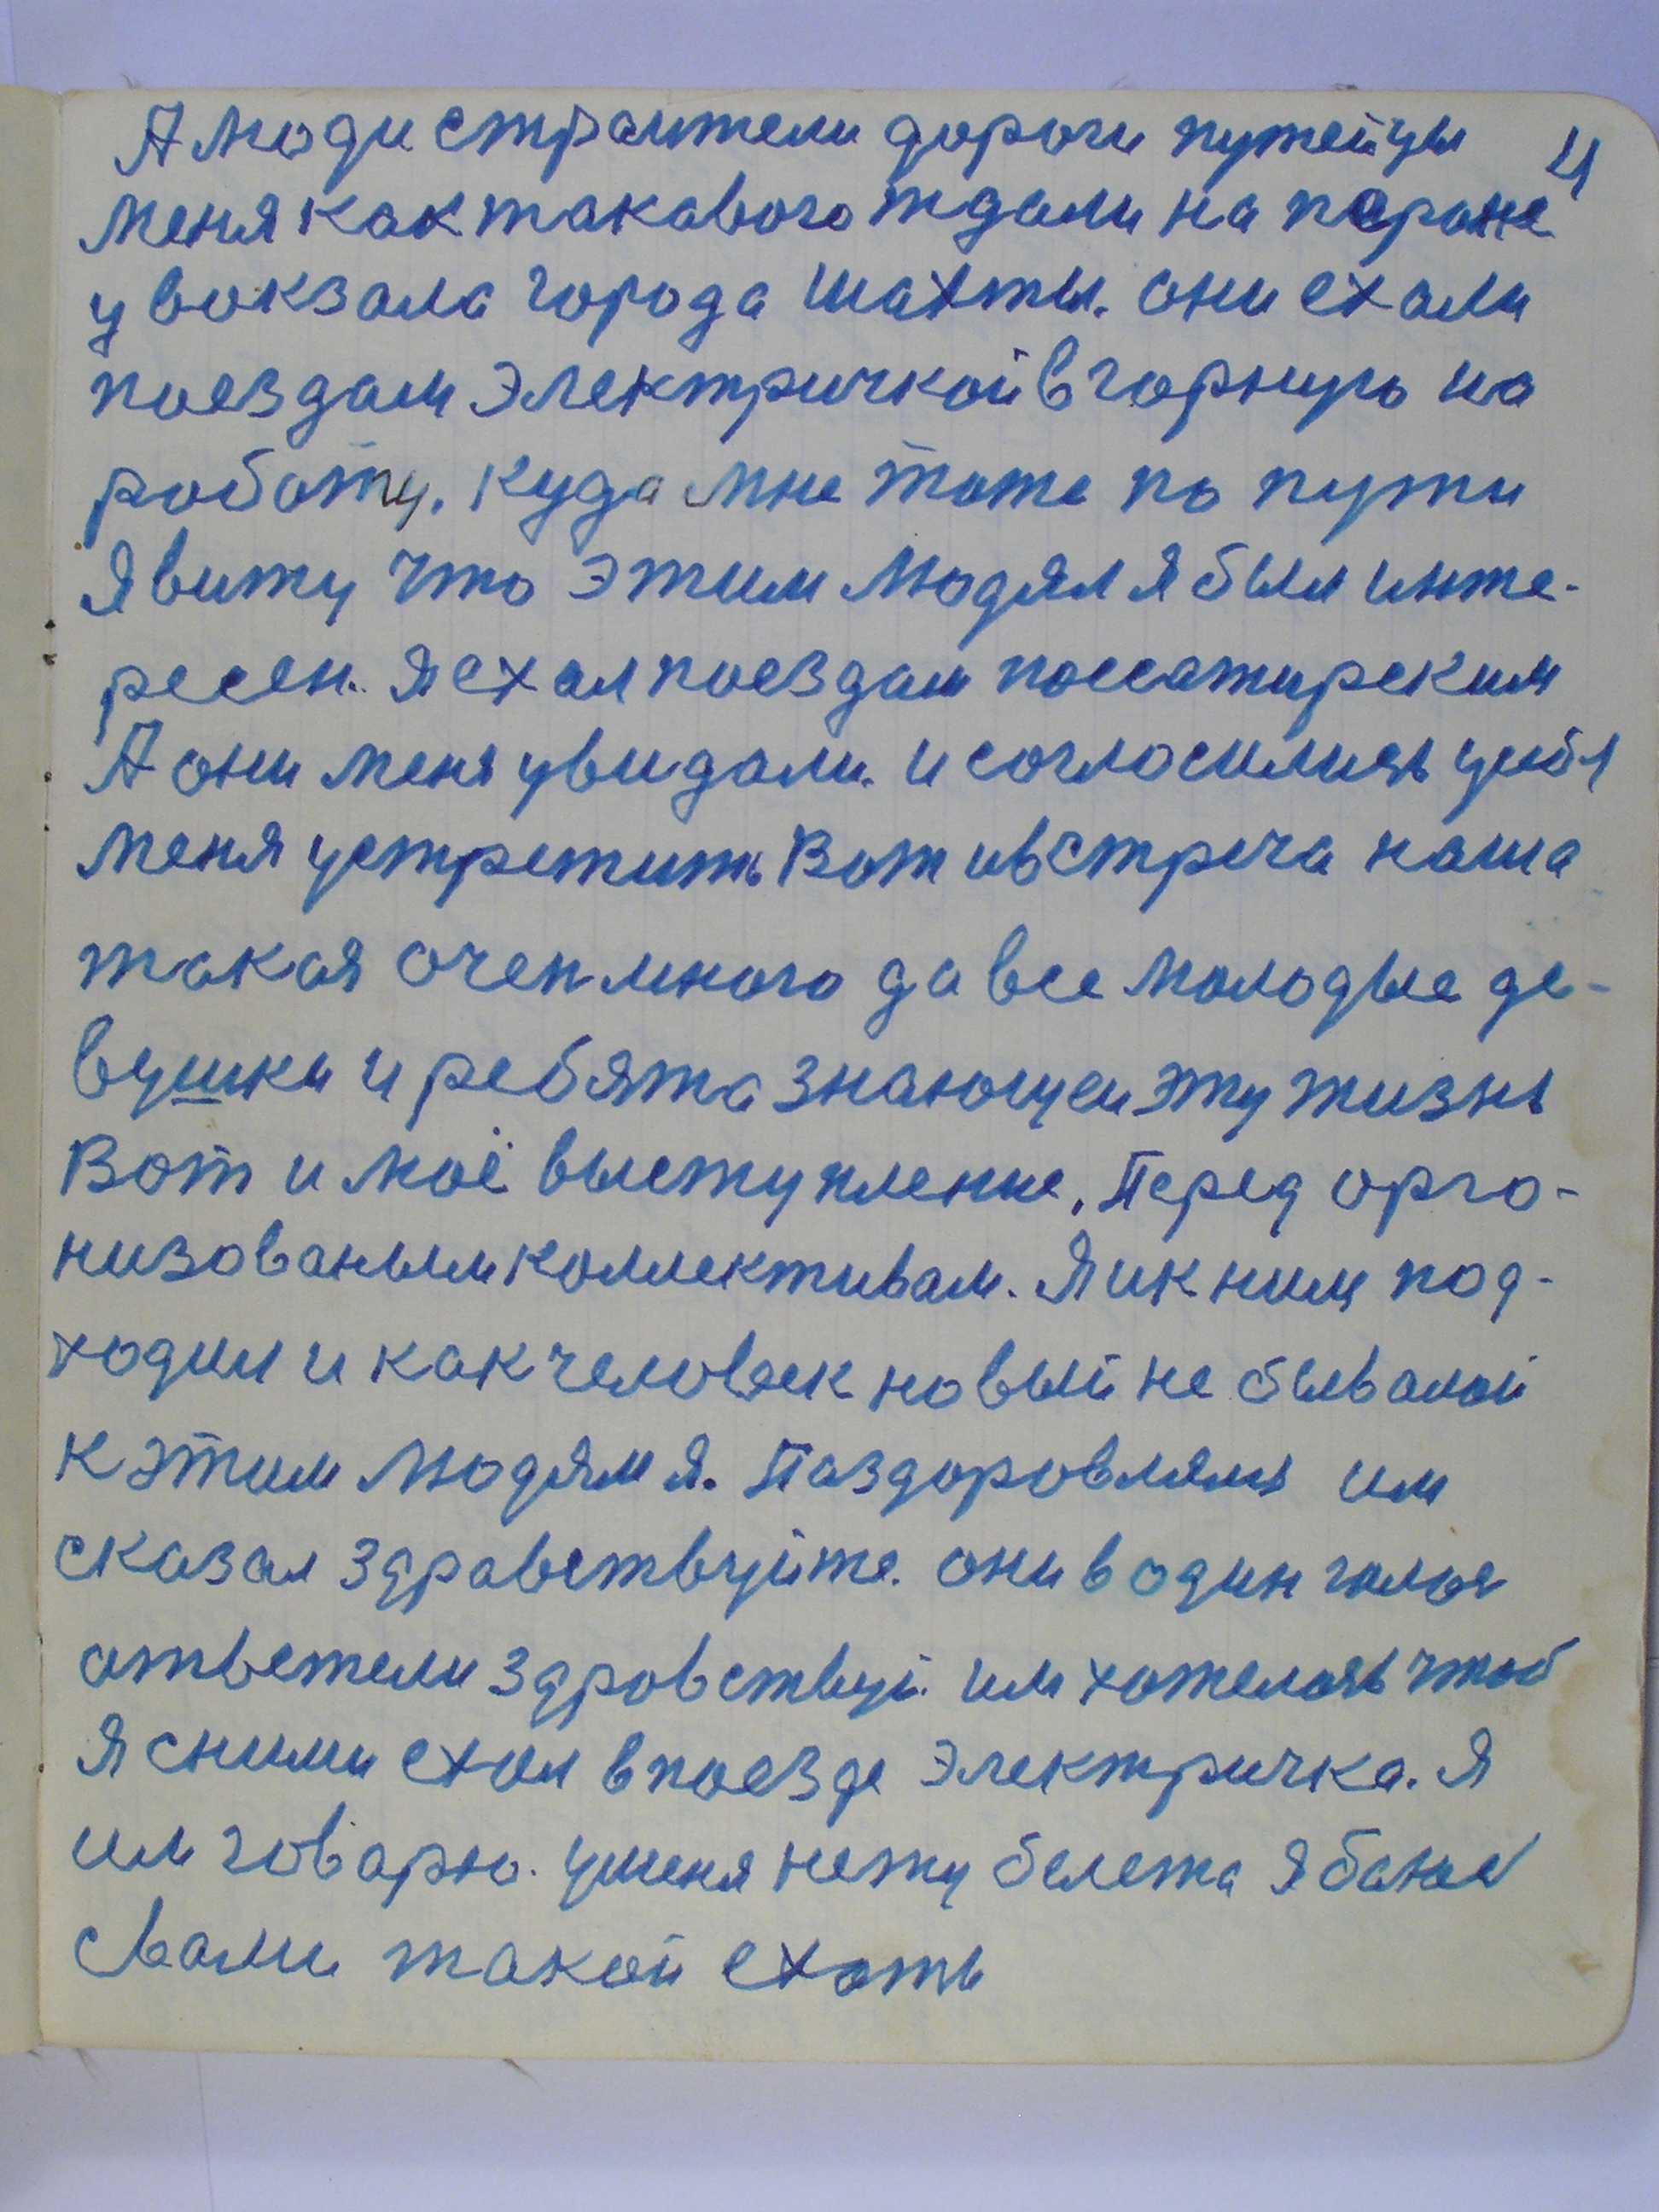 А люди страители дороги путейцы 4
меня как такавого ждали на пероне
у вокзала города шахты. они ехали
поездам электричкой в горную на
роботу. куда мне тоже по пути
Я вижу что этим людям я был инте-
ресен. я ехал поездам поссажирским
А они меня увидали. и согласились
меня устретить Вот и встреча наша
такая очен много да все молодые де-
вушки и ребята знающеи эту жизнь
Вот и моё выступление. Перед орга-
низованым коллективам. Я и к ним под-
ходил и как человек новый не бывалой
к этим людям я. Паздоровлялся им
сказал здравствуйте. они в один голос
атветели здровствуй. им хотелось чтоб
я сними ехал в поезде электричка. я
им говарю. уменя нету белета я боюся
свами такой ехать